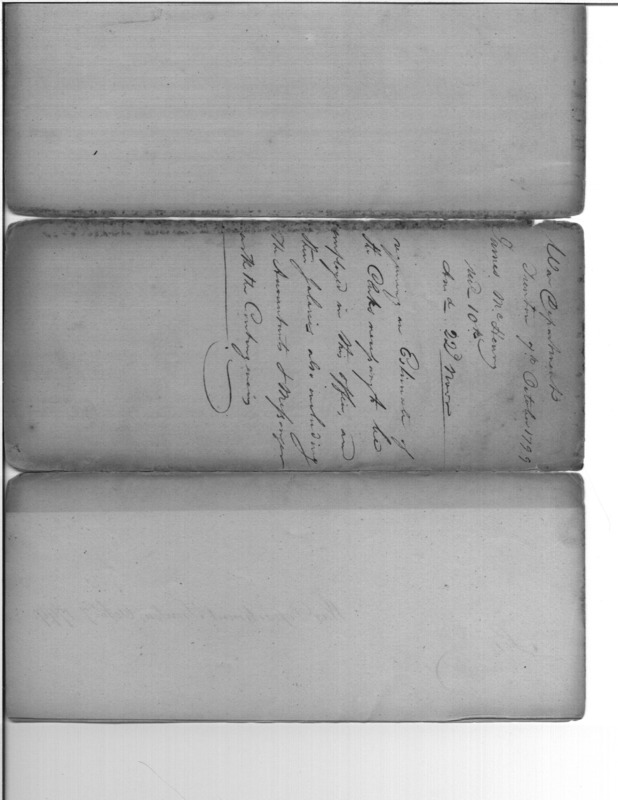 War Department
Trenton 9th October 1799
James McHenry
recd 10th
Ansd 22d Novr
requiring an Estimate of
the Clerks necessary to be
employed in this office, and
their Salaries also including
the Accountants & Messenger
with the Contingencies
War Department Trenton Octr 9 1799